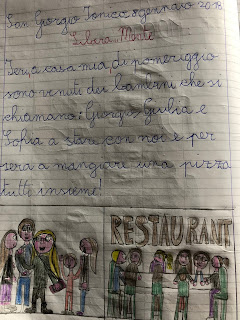 San Giorgio Ionico, 8 gennaio 2018
Libera Mente
Ieri, a casa mia di pomeriggio
sono venuti dei bambini che si
chiamano: Giorgio, Giulia e
Sofia a stare con noi e per
sera a mangiare una pizza
tutti insieme!
RESTAURANT